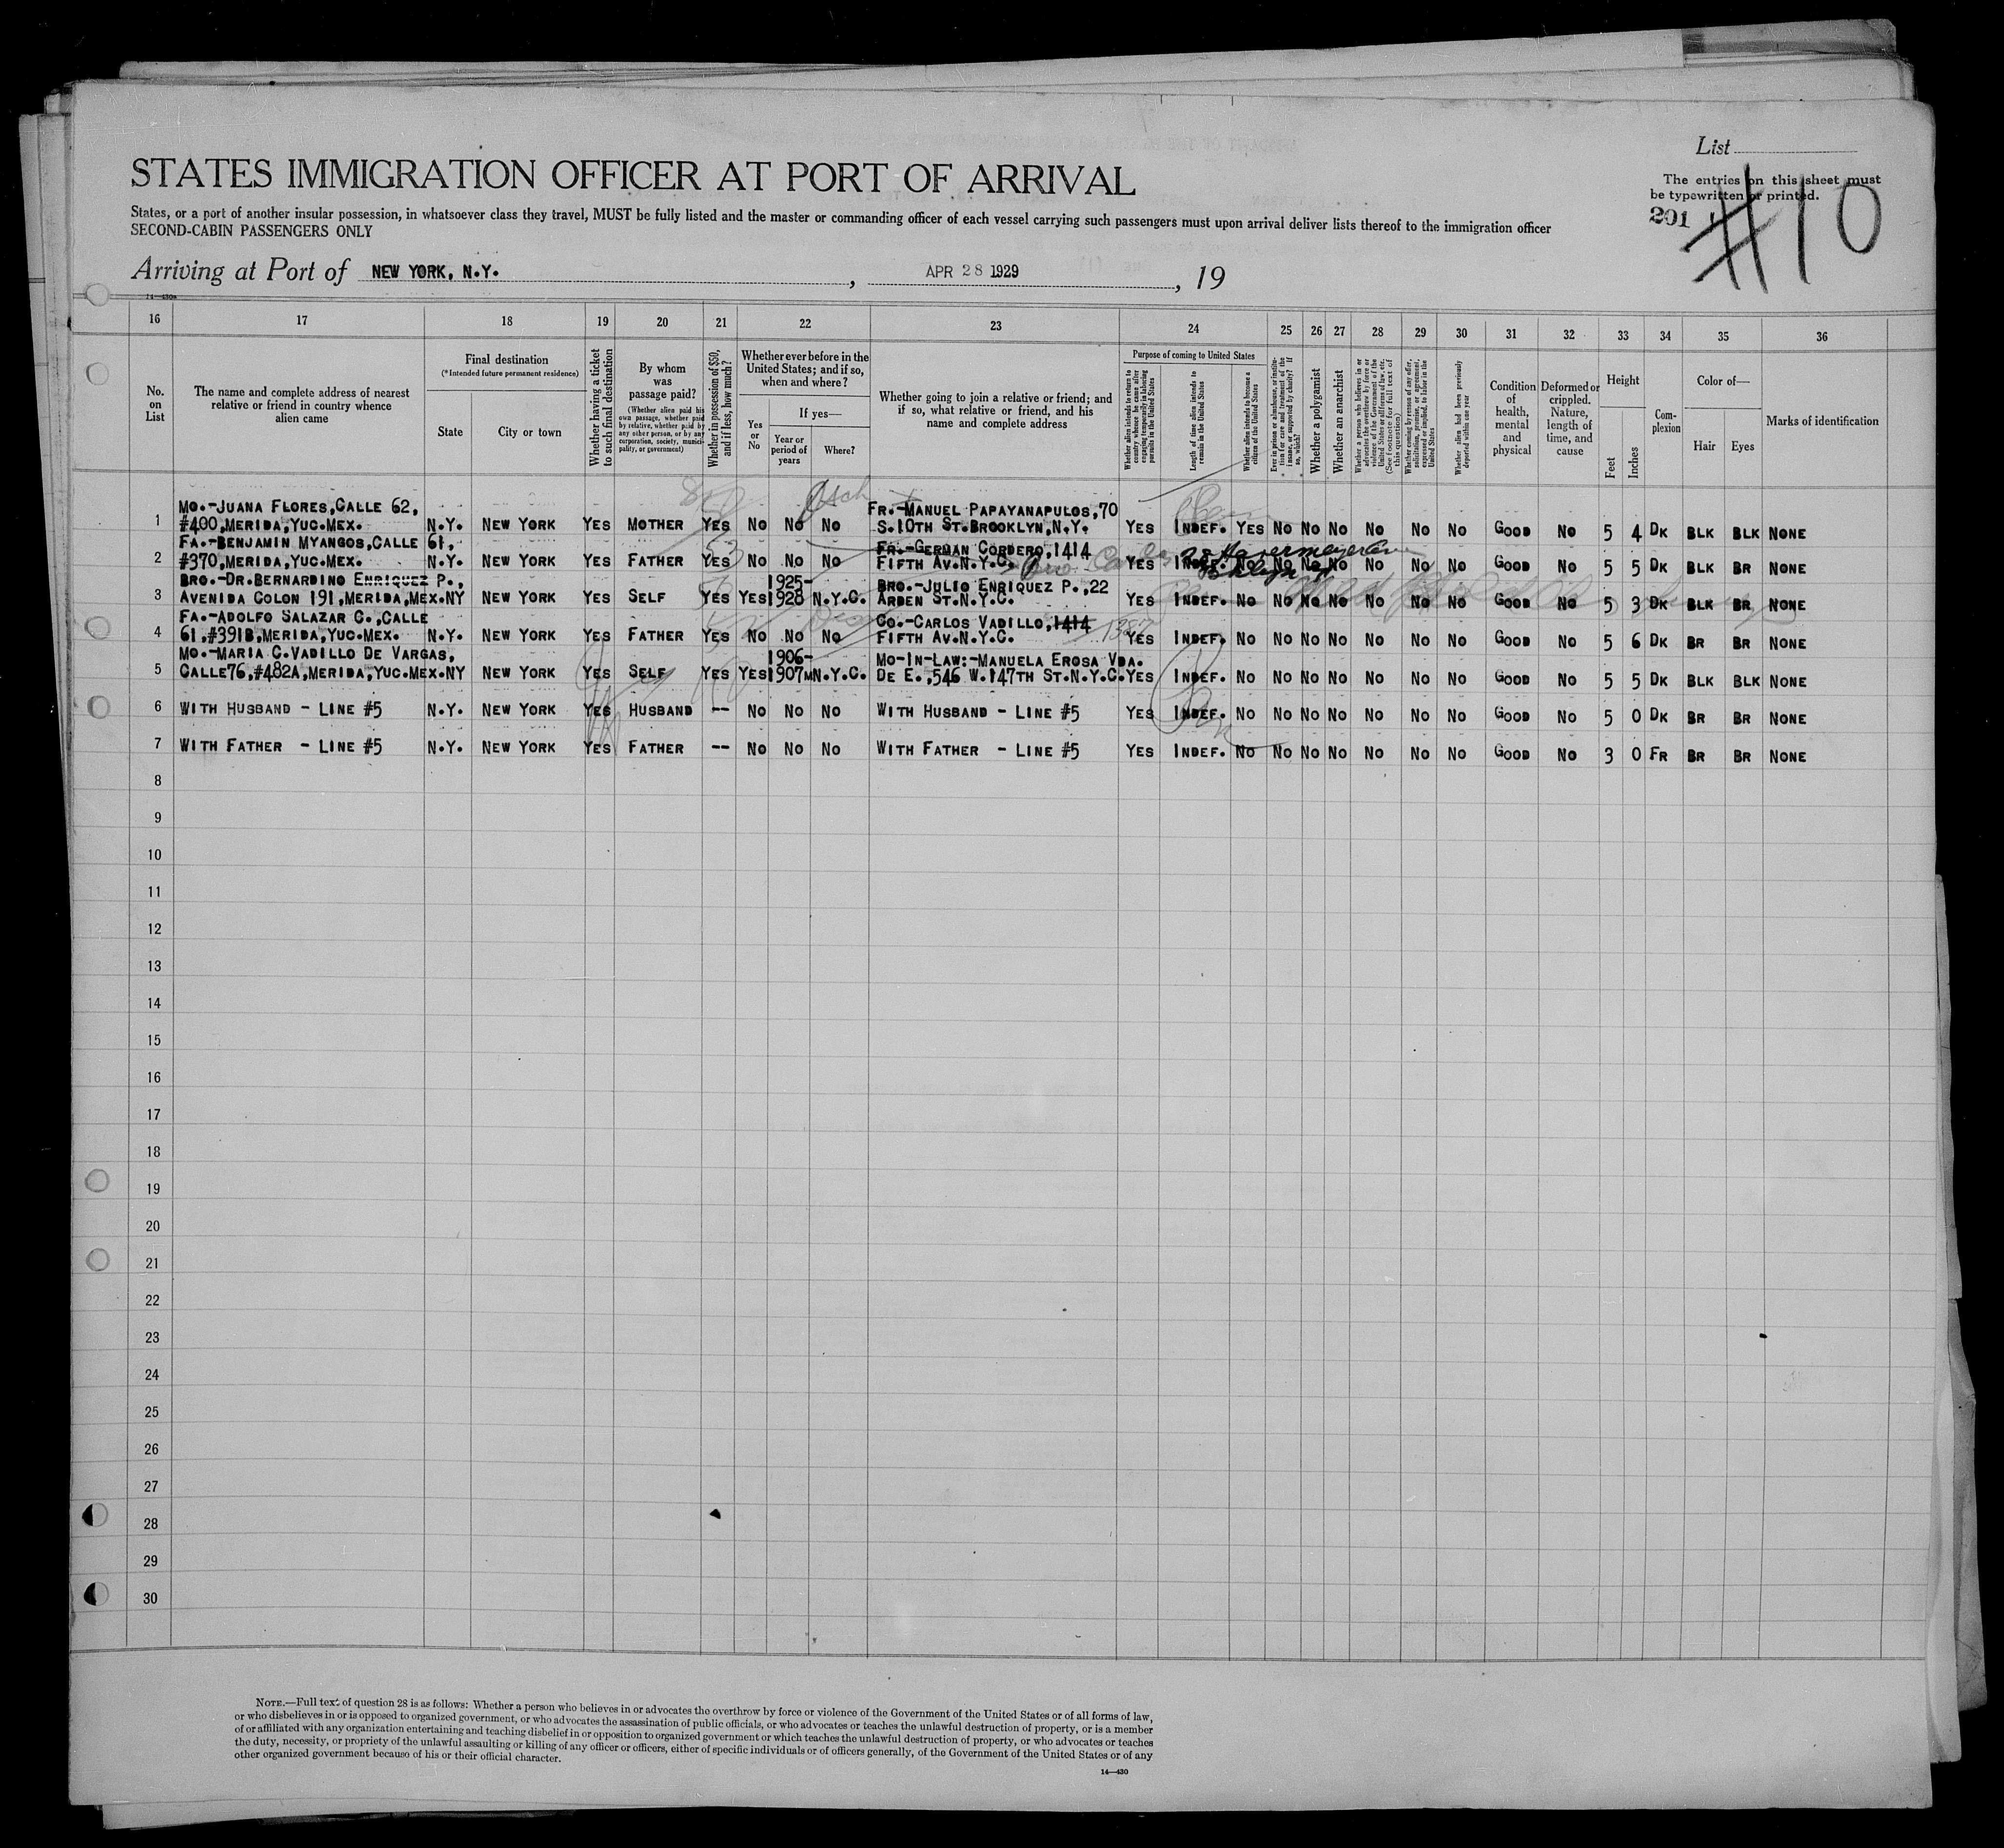 List
The entries on this sheet must
be typewritten or printed.
201
#10
STATES IMMIGRATION OFFICER AT PORT OF ARRIVAL
States, or a port of another insular possession, in whatsoever class they travel, MUST be fully listed and the master or commanding officer of each vessel carrying such passengers must upon arrival deliver lists thereof to the immigration officer
SECOND-CABIN PASSENGERS ONLY
Arriving at Port of NEW YORK, N.Y. , APR 28 1929 , 19
14—430a
16 17 18 19 20 21 22 23 24 25 26 27 28 29 30 31 32 33 34 35 36
No. on List
The name and complete address of nearest relative or friend in country whence alien came
Final destination
(*Intended future permanent residence)
State
City or town
Whether having a ticket to such final destination
By whom was passage paid?
(Whether alien paid his own passage, whether paid by relative, whether paid by any other person, or by any corporation, society, municipality, or government)
Whether in possession of $50, and if less, how much?
Whether ever before in the United States; and if so, when and where?
Yes or No
If yes—
Year or period of years
Where?
Whether going to join a relative or friend; and if so, what relative or friend, and his name and complete address
Purpose of coming to United States
Whether alien intends to return to country whence he came after engaging temporarily in laboring pursuits in the United States
Length of time alien intends to remain in the United States
Whether alien intends to become a citizen of the United States
Ever in prison or almshouse, or institution for care and treatment of the insane, or supported by charity? If so, which?
Whether a polygamist
Whether an anarchist
Whether a person who believes in or advocates the overthrow by force or violence of the Government of the United States or all forms of law, etc. (See footnote for full text of this question)
Whether coming by reason of any offer, solicitation, promise, or agreement, expressed or implied, to labor in the United States
Whether alien had been previously deported within one year
Condition of health, mental and physical
Deformed or crippled. Nature, length of time, and cause
Height
Feet
Inches
Complexion
Color of—
Hair
Eyes
Marks of identification
MO.-JUANA FLORES,CALLE 62, FR.-MANUEL PAPAYANAPULOS,70
1 #400,MERIDA,YUC.MEX. N.Y. NEW YORK YES MOTHER YES NO NO NO S.10TH ST.BROOKLYN,N.Y. YES INDEF. YES NO NO NO NO NO NO GOOD NO 5 4 DK BLK BLK NONE
FA.-BENJAMIN MYANGOS,CALLE 61, FR.-GERMAN CORDERO,1414
2 #370,MERIDA,YUC.MEX. N.Y. NEW YORK YES FATHER YES NO NO NO FIFTH AV.N.Y.C. YES INDEF. NO NO NO NO NO NO NO GOOD NO 5 5 DK BLK BR NONE
BRO.-DR.BERNARDINO ENRIQUEZ P., 1925- BRO.-JULIO ENRIQUEZ P.,22
3 AVENIDA COLON 191,MERIDA,MEX.NY NEW YORK YES SELF YES YES 1928 N.Y.C. ARDEN ST.N.Y.C. YES INDEF. NO NO NO NO NO NO NO GOOD NO 5 3 DK BLK BR NONE
FA.-ADOLFO SALAZAR C.,CALLE CO.-CARLOS VADILLO,1414 1387
4 61,#391B,MERIDA,YUC.MEX. N.Y. NEW YORK YES FATHER YES NO NO NO FIFTH AV.N.Y.C. YES INDEF. NO NO NO NO NO NO NO GOOD NO 5 6 DK BR BR NONE
MO.-MARIA C.VADILLO DE VARGAS, 1906- MO-IN-LAW:-MANUELA EROSA VDA.
5 CALLE76,#482A,MERIDA,YUC.MEX.NY NEW YORK YES SELF YES YES 1907 N.Y.C. DE E.,546 W.147TH ST.N.Y.C. YES INDEF. NO NO NO NO NO NO NO GOOD NO 5 5 DK BLK BLK NONE
6 WITH HUSBAND - LINE #5 N.Y. NEW YORK YES HUSBAND -- NO NO NO WITH HUSBAND - LINE #5 YES INDEF. NO NO NO NO NO NO NO GOOD NO 5 0 DK BR BR NONE
7 WITH FATHER - LINE #5 N.Y. NEW YORK YES FATHER -- NO NO NO WITH FATHER - LINE #5 YES INDEF. NO NO NO NO NO NO NO GOOD NO 3 0 FR BR BR NONE
8
9
10
11
12
13
14
15
16
17
18
19
20
21
22
23
24
25
26
27
28
29
30
NOTE.—Full text of question 28 is as follows: Whether a person who believes in or advocates the overthrow by force or violence of the Government of the United States or of all forms of law,
or who disbelieves in or is opposed to organized government, or who advocates the assassination of public officials, or who advocates or teaches the unlawful destruction of property, or is a member
of or affiliated with any organization entertaining and teaching disbelief in or opposition to organized government or which teaches the unlawful destruction of property, or who advocates or teaches
the duty, necessity, or propriety of the unlawful assaulting or killing of any officer or officers, either of specific individuals or of officers generally, of the Government of the United States or of any
other organized government because of his or their official character.
14—430